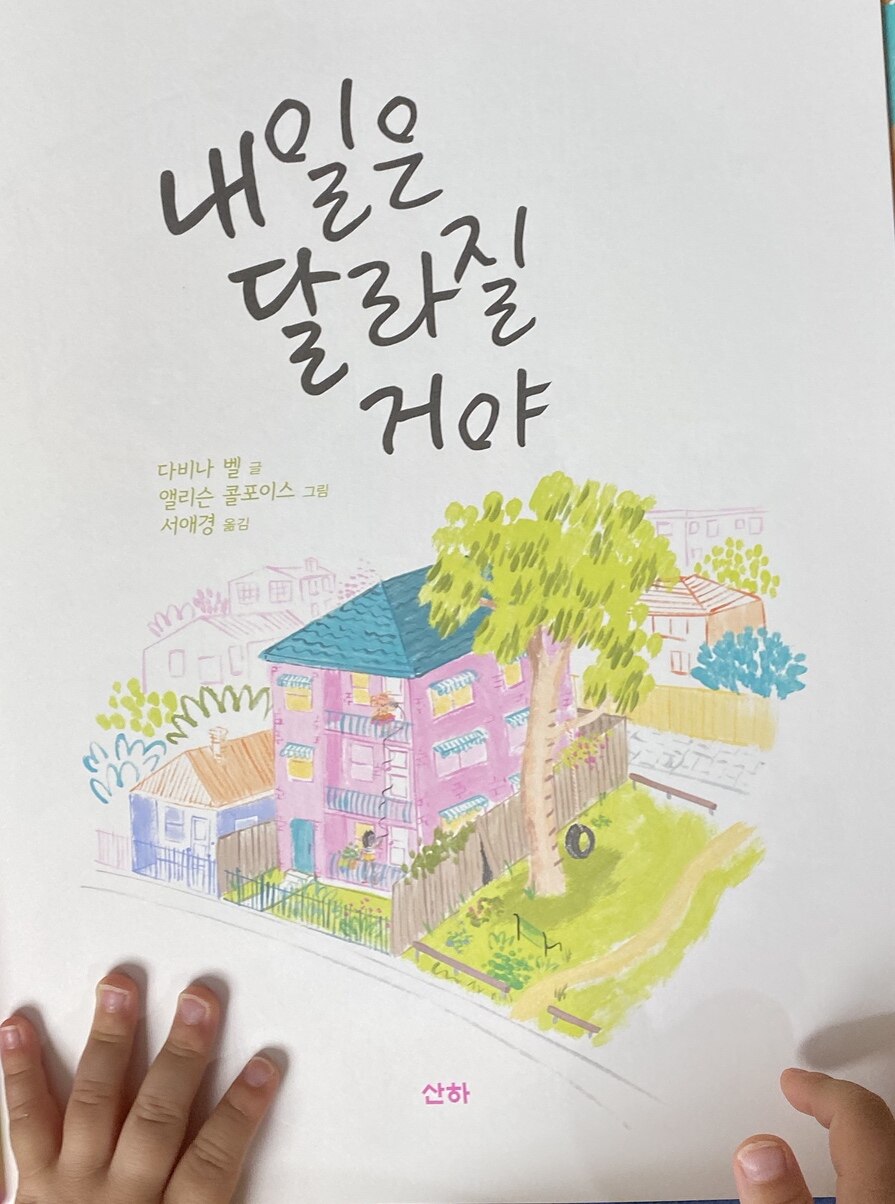 내일은
달라질
거야
다비나 벨 글
앨리슨 콜포이스 그림
서애경 옮김
산하